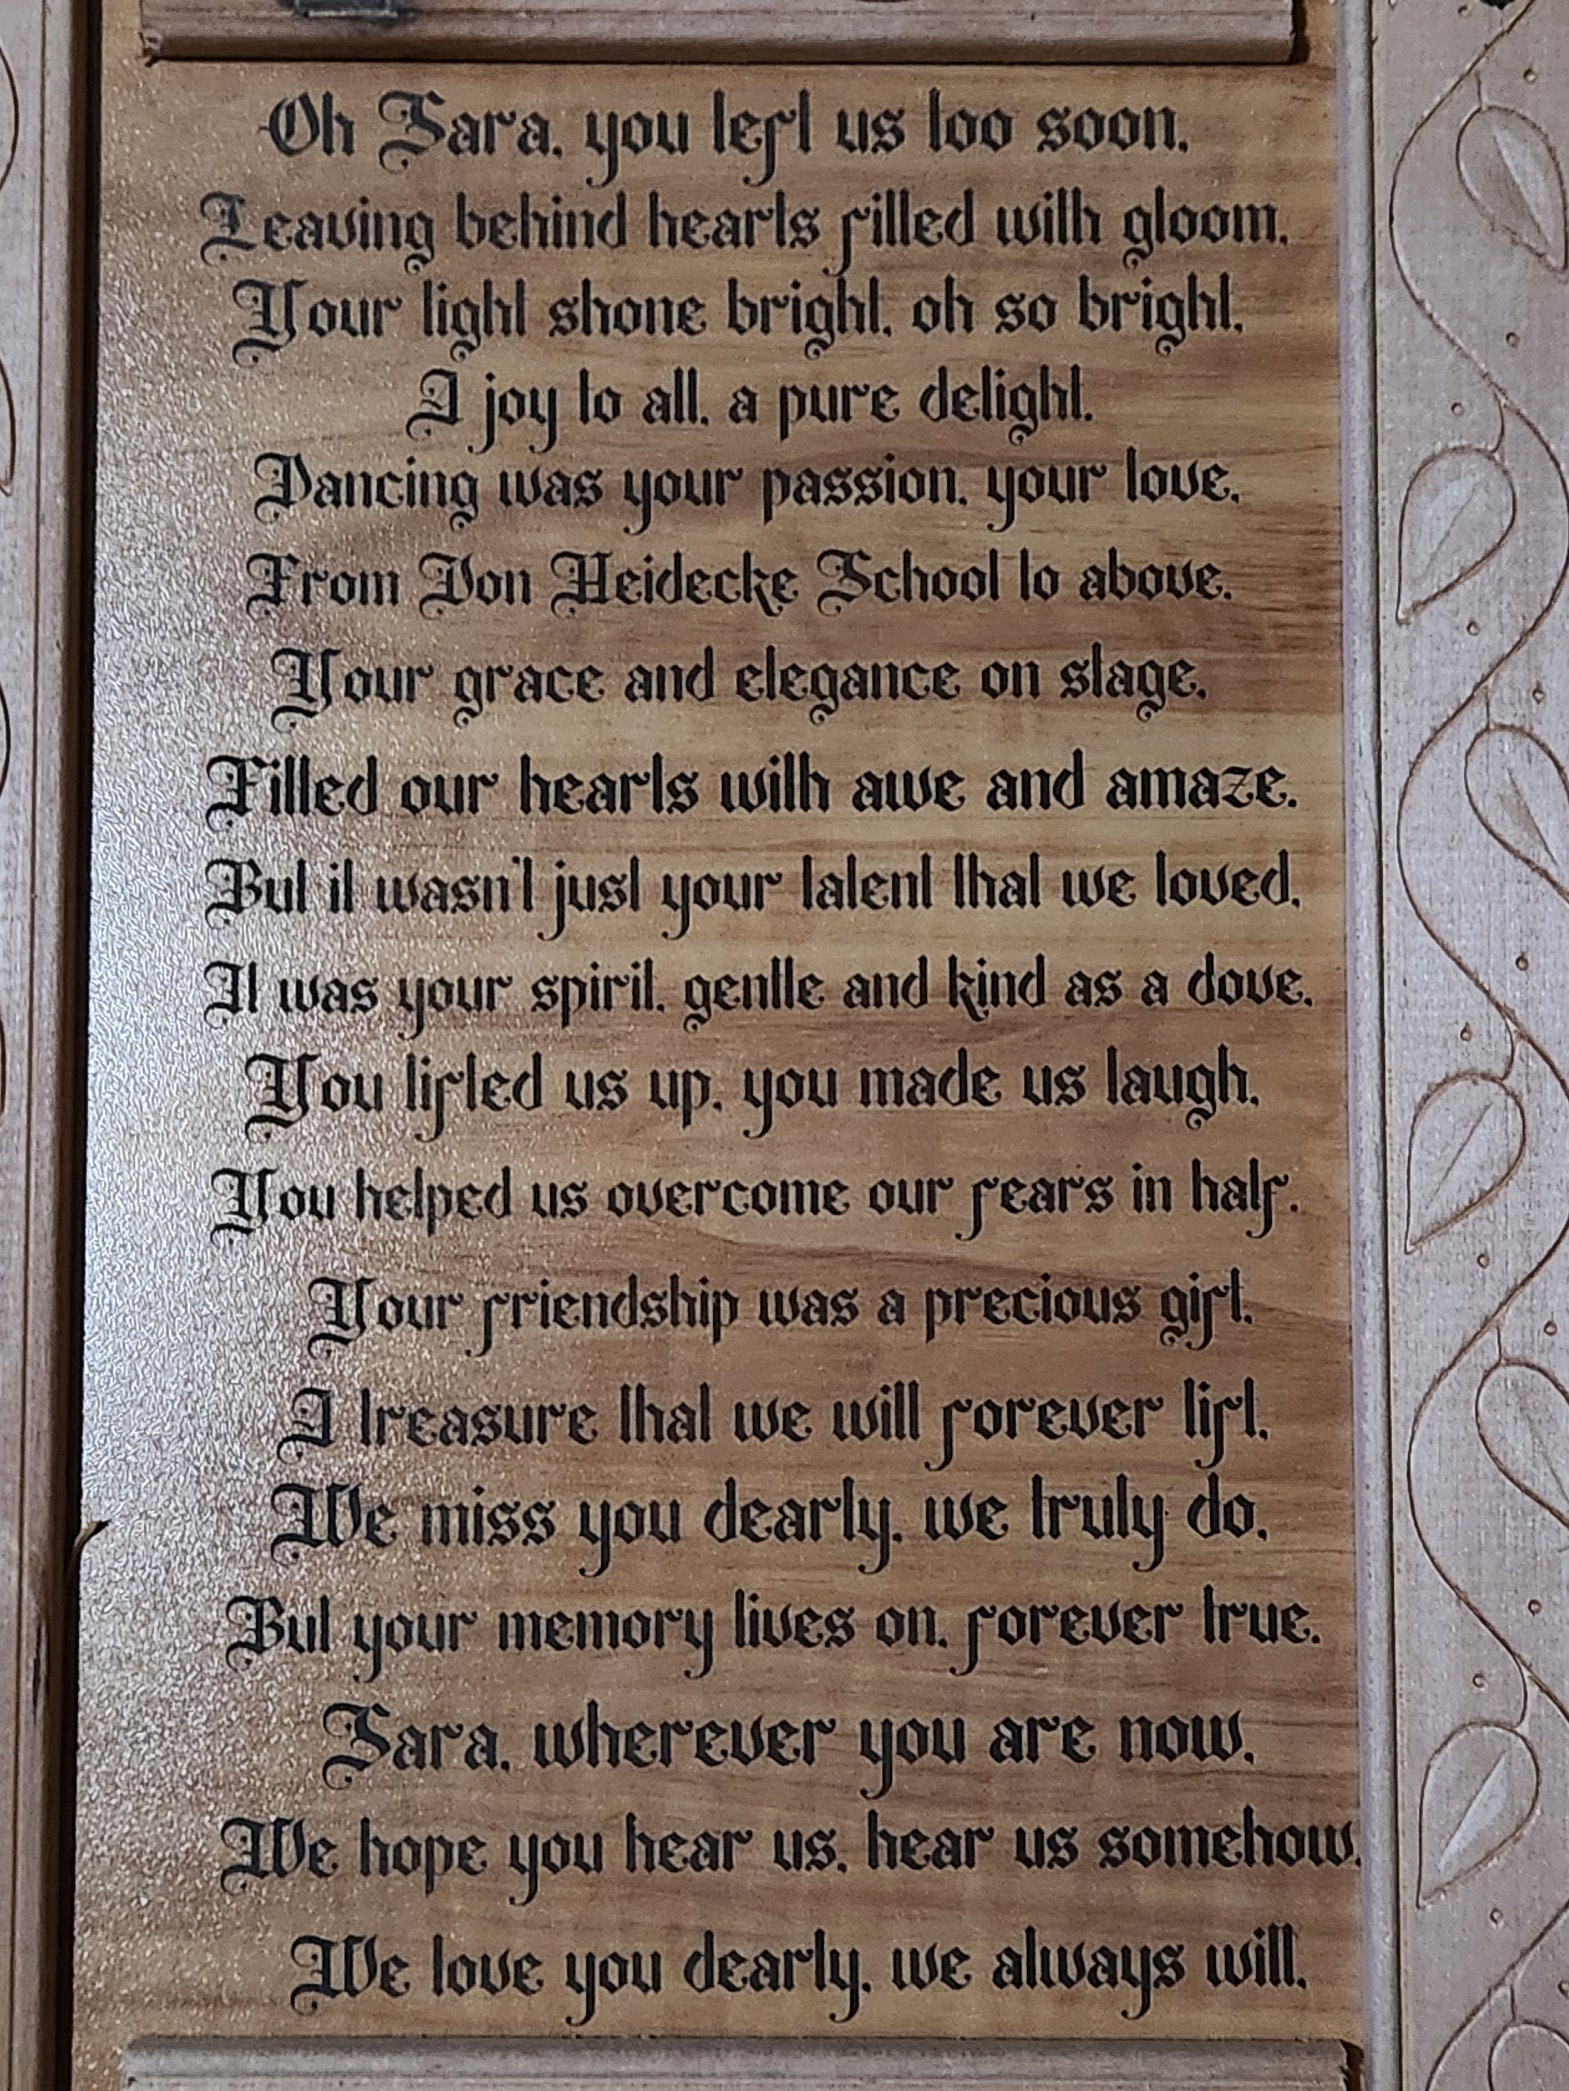 Oh Sara, you left us too soon,
Leaving behind hearts filled with gloom,
Your light shone bright, oh so bright,
A joy to all, a pure delight.
Dancing was your passion, your love,
From Von Heidecke School to above,
Your grace and elegance on stage,
Filled our hearts with awe and amaze.
But it wasn't just your talent that we loved,
It was your spirit, gentle and kind as a dove,
You lifted us up, you made us laugh,
You helped us overcome our fears in half.
Your friendship was a precious gift,
A treasure that we will forever lift,
We miss you dearly, we truly do,
But your memory lives on, forever true.
Sara, wherever you are now,
We hope you hear us, hear us somehow,
We love you dearly, we always will,